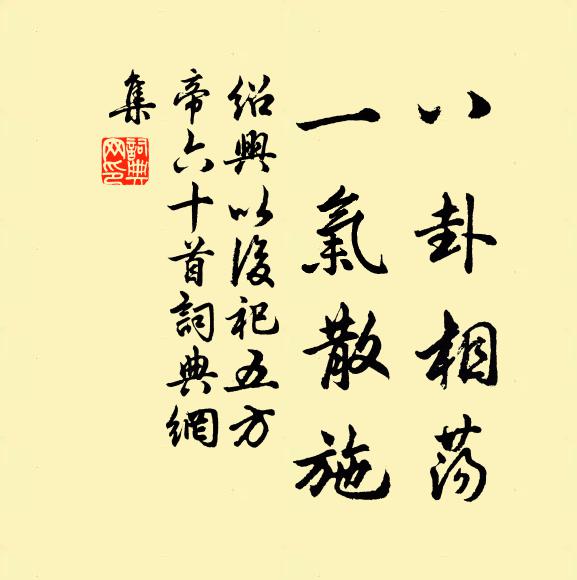 八卦相蕩
一氣散施
紹興以後祀五方
帝六十首詞典網
集
詞典
网印